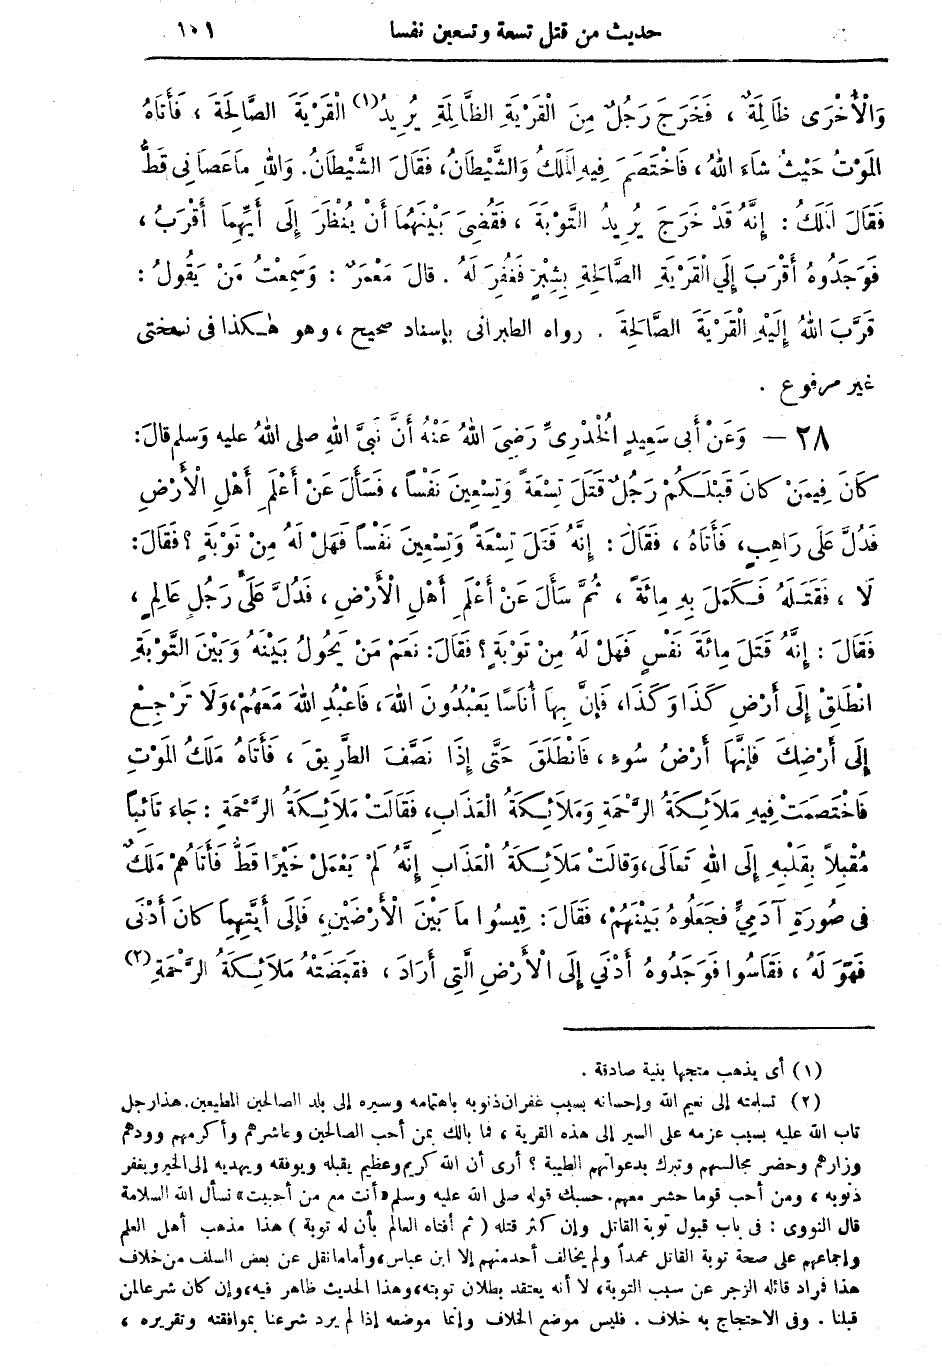 حديث من قتل تسعة وتسعين نفسا ١٠١
وَالْأُخْرَى ظَالِمَةٌ ، فَخَرَجَ رَجُلٌ مِنَ الْقَرْيَةِ الظَّالِمَةِ يُرِيدُ(١) الْقَرْيَةَ الصَّالِحَةَ ، فَأَتَاهُ
الْمَوْتُ حَيْثُ شَاءَ اللهُ ، فَاخْتَصَمَ فِيهِ الْمَلَكُ وَالشَّيْطَانُ، فَقَالَ الشَّيْطَانُ. وَاللهِ مَاعَصَانِي قَطُّ
فَقَالَ الْمَلَكُ : إِنَّهُ قَدْ خَرَجَ يُرِيدُ التَّوْبَةَ ، فَقُضِيَ بَيْنَهُمَا أَنْ يُنْظَرَ إِلَى أَيِّهِمَا أَقْرَبُ ،
فَوَجَدُوهُ أَقْرَبَ إِلَي الْقَرْيَةِ الصَّالِحَةِ بِشِبْرٍ فَغُفِرَ لَهُ . قالَ مَعْمَرٌ : وَسَمِعْتُ مَنْ يَقُولُ :
قَرَّبَ اللهُ إِلَيْهِ الْقَرْيَةَ الصَّالِحَةَ . رواه الطبرانى بإسناد صحيح ، وهو هٰكذا فى نسختى
غير مرفوع .
٢٨ — وَعَنْ أَبِى سَعِيدٍ الْخُدْرِىِّ رَضِىَ اللهُ عَنْهُ أَنَّ نَبِىَّ اللهِ صلى اللهُ عليه وَسلم قالَ:
كَانَ فِيمَنْ كانَ قَبْلَكُمْ رَجُلٌ قَتَلَ تِسْعَةً وَتِسْعِينَ نَفْسًا ، فَسَأَلَ عَنْ أَعْلَمِ أَهْلِ الْأَرْضِ
فَدُلَّ عَلَى رَاهِبٍ، فَأَتَاهُ ، فَقَالَ : إِنَّهُ قَتَلَ تِسْعَةً وَتِسْعِينَ نَفْسًا فَهَلْ لَهُ مِنْ تَوْبَةٍ ؟ فَقَالَ:
لَا ، فَقَتَلَهُ فَكَمَّلَ بِهِ مِائَةً ، ثُمَّ سَأَلَ عَنْ أَعْلَمِ أَهْلِ الْأَرْضِ ، فَدُلَّ عَلَى رَجُلٍ عَالِمٍ ،
فَقَالَ : إِنَّهُ قَتَلَ مِائَةَ نَفْسٍ فَهَلْ لَهُ مِنْ تَوْبَةٍ ؟ فَقَالَ: نَعَمْ مَنْ يَحُولُ بَيْنَهُ وَبَيْنَ التَّوْبَةِ
انْطَلِقْ إِلَى أَرْضِ كَذَا وَكَذَا، فَإِنَّ بِهَا أُنَاسًا يَعْبُدُونَ اللهَ ، فَاعْبُدِ اللهَ مَعَهُمْ، وَلَا تَرْجِعْ
إِلَى أَرْضِكَ فَإِنَّهَا أَرْضُ سُوءٍ ، فَانْطَلَقَ حَتَّى إِذَا نَصَّفَ الطَّرِيقَ ، فَأَتَاهُ مَلَكُ الْمَوْتِ
فَاخْتَصَمَتْ فِيهِ مَلَائِكَةُ الرَّحْمَةِ وَمَلَائِكَةُ الْعَذَابِ، فَقَالَتْ مَلَائِكَةُ الرَّحْمَةِ : جَاءَ تَائِبًا
مُقْبِلًا بِقَلْبِهِ إِلَى اللهِ تَعَالَى، وَقَالَتْ مَلَائِكَةُ الْعَذَابِ إِنَّهُ لَمْ يَعْمَلْ خَيْرًا قَطُّ فَأَتَاهُمْ مَلَكٌ
فى صُورَةِ آدَمِيٍّ فَجَعَلُوهُ بَيْنَهُمْ، فَقَالَ: قِيسُوا مَا بَيْنَ الْأَرْضَيْنِ، فَإِلَى أَيَّتِهِمَا كانَ أَدْنَى
فَهُوَ لَهُ ، فَقَاسُوا فَوَجَدُوهُ أَدْنَي إِلَى الْأَرْضِ الَّتِى أَرَادَ ، فَقَبَضَتْهُ مَلَائِكَةُ الرَّحْمَةِ(٢)
(١) أى يذهب متجها بنية صادقة .
(٢) تسلمته إلى نعيم الله وإحسانه بسبب غفران ذنوبه باهتمامه وسيره إلى بلد الصالحين المطيعين. هذا رجل
تاب الله عليه بسبب عزمه على السير إلى هذه القرية ، فما بالك بمن أحب الصالحين وعاشرهم وأكرمهم وودهم
وزارهم وحضر مجالسهم وتبرك بدعواتهم الطيبة ؟ أرى أن الله كريم وعظيم يقبله ويوفقه ويهديه إلى الخير ويغفر
ذنوبه ، ومن أحب قوما حشر معهم. حسبك قوله صلى الله عليه وسلم «أنت مع من أحببت» نسأل الله السلامة
قال النووى : فى باب قبول توبة القاتل وإن كثر قتله ( ثم أفتاه العالم بأن له توبة ) هذا مذهب أهل العلم
وإجماعهم على صحة توبة القاتل عمداً ولم يخالف أحد منهم إلا ابن عباس، وأما ما نقل عن بعض السلف من خلاف
هذا فراد قائله الزجر عن سبب التوبة، لا أنه يعتقد بطلان توبته، وهذا الحديث ظاهر فيه، وإن كان شرعا لمن
قبلنا . وفى الاحتجاج به خلاف . فليس موضع الخلاف وإنما موضعه إذا لم يرد شرعنا بموافقته وتقريره ،